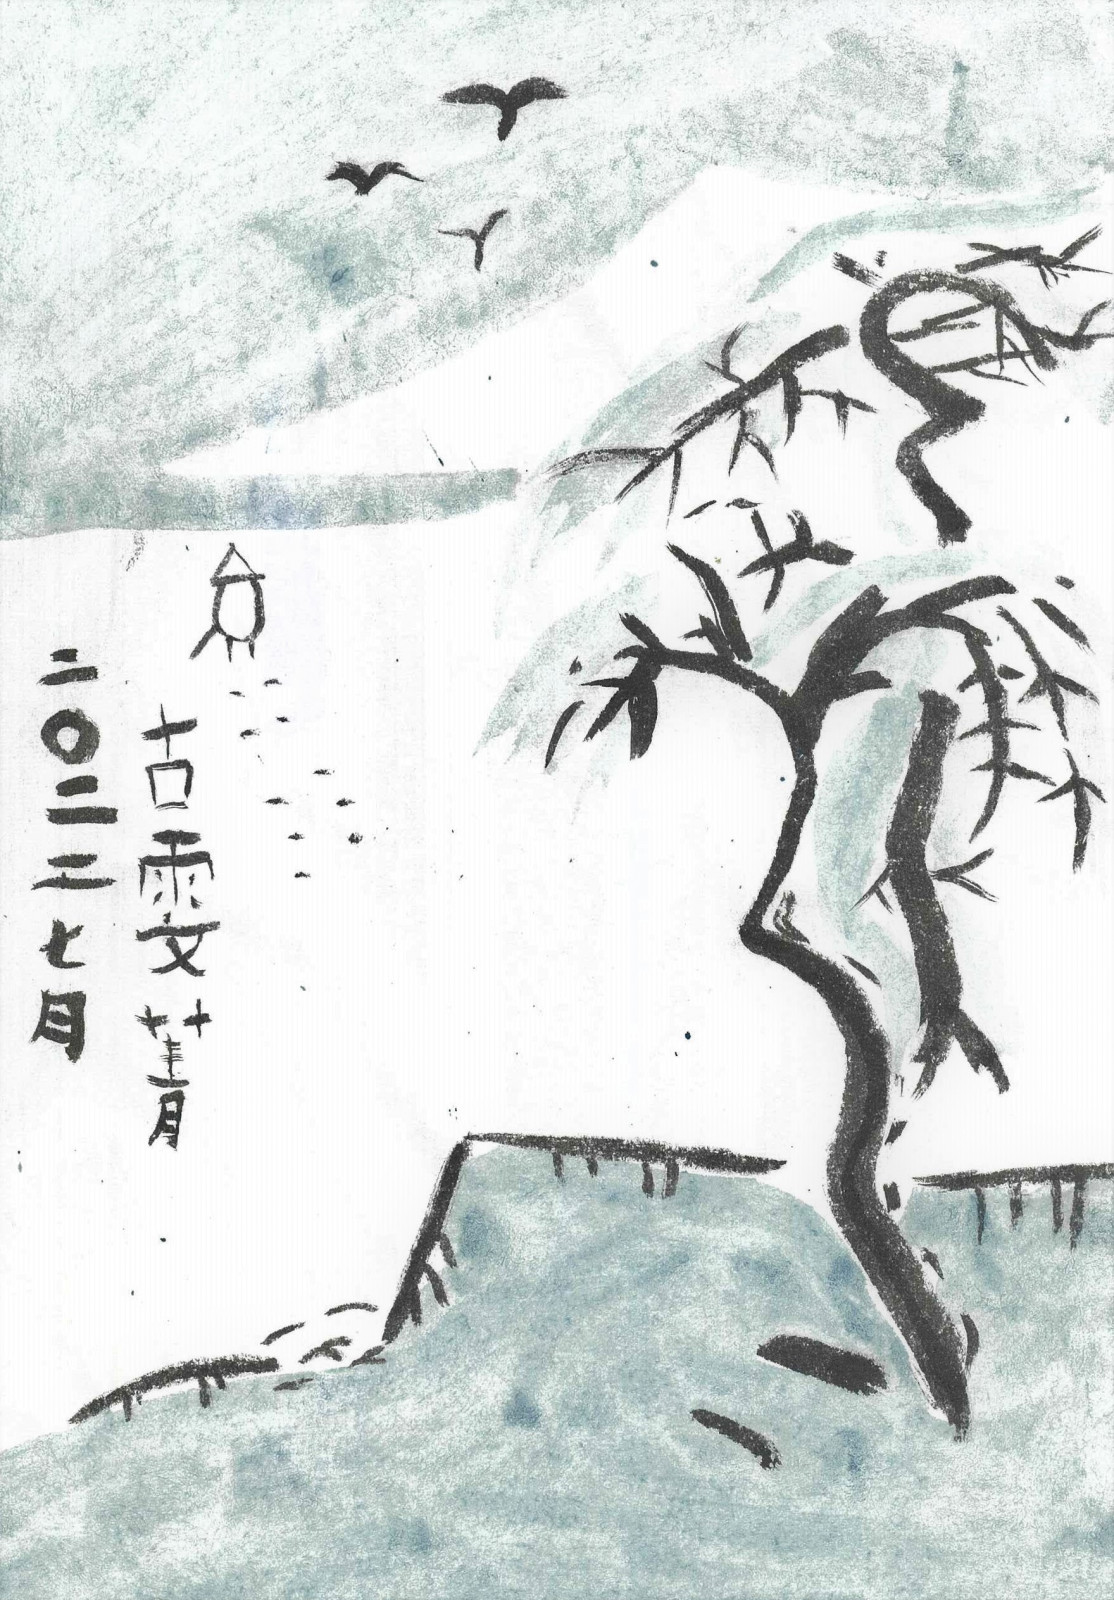 古雯菁
二〇二二七月